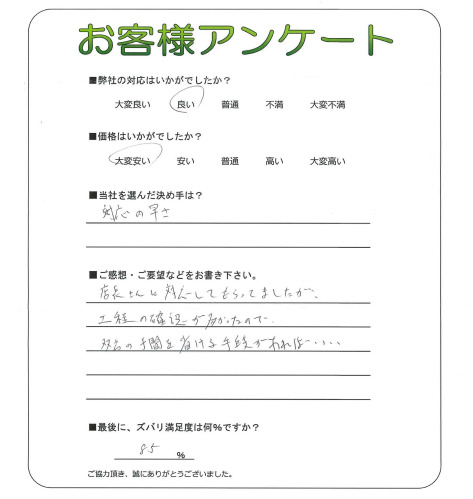 お客様アンケート
■弊社の対応はいかがでしたか?
大変良い 良い 普通 不満 大変不満
■価格はいかがでしたか?
大変安い 安い 普通 高い 大変高い
■当社を選んだ決め手は?
対応の早さ
■ご感想・ご要望などをお書き下さい。
店長さんに対応してもらってましたが、
工程の確認が多かったので
双方の手間を省ける手続があれば・・・・・
■最後に、ズバリ満足度は何%ですか?
85 %
ご協力頂き、誠にありがとうございました。